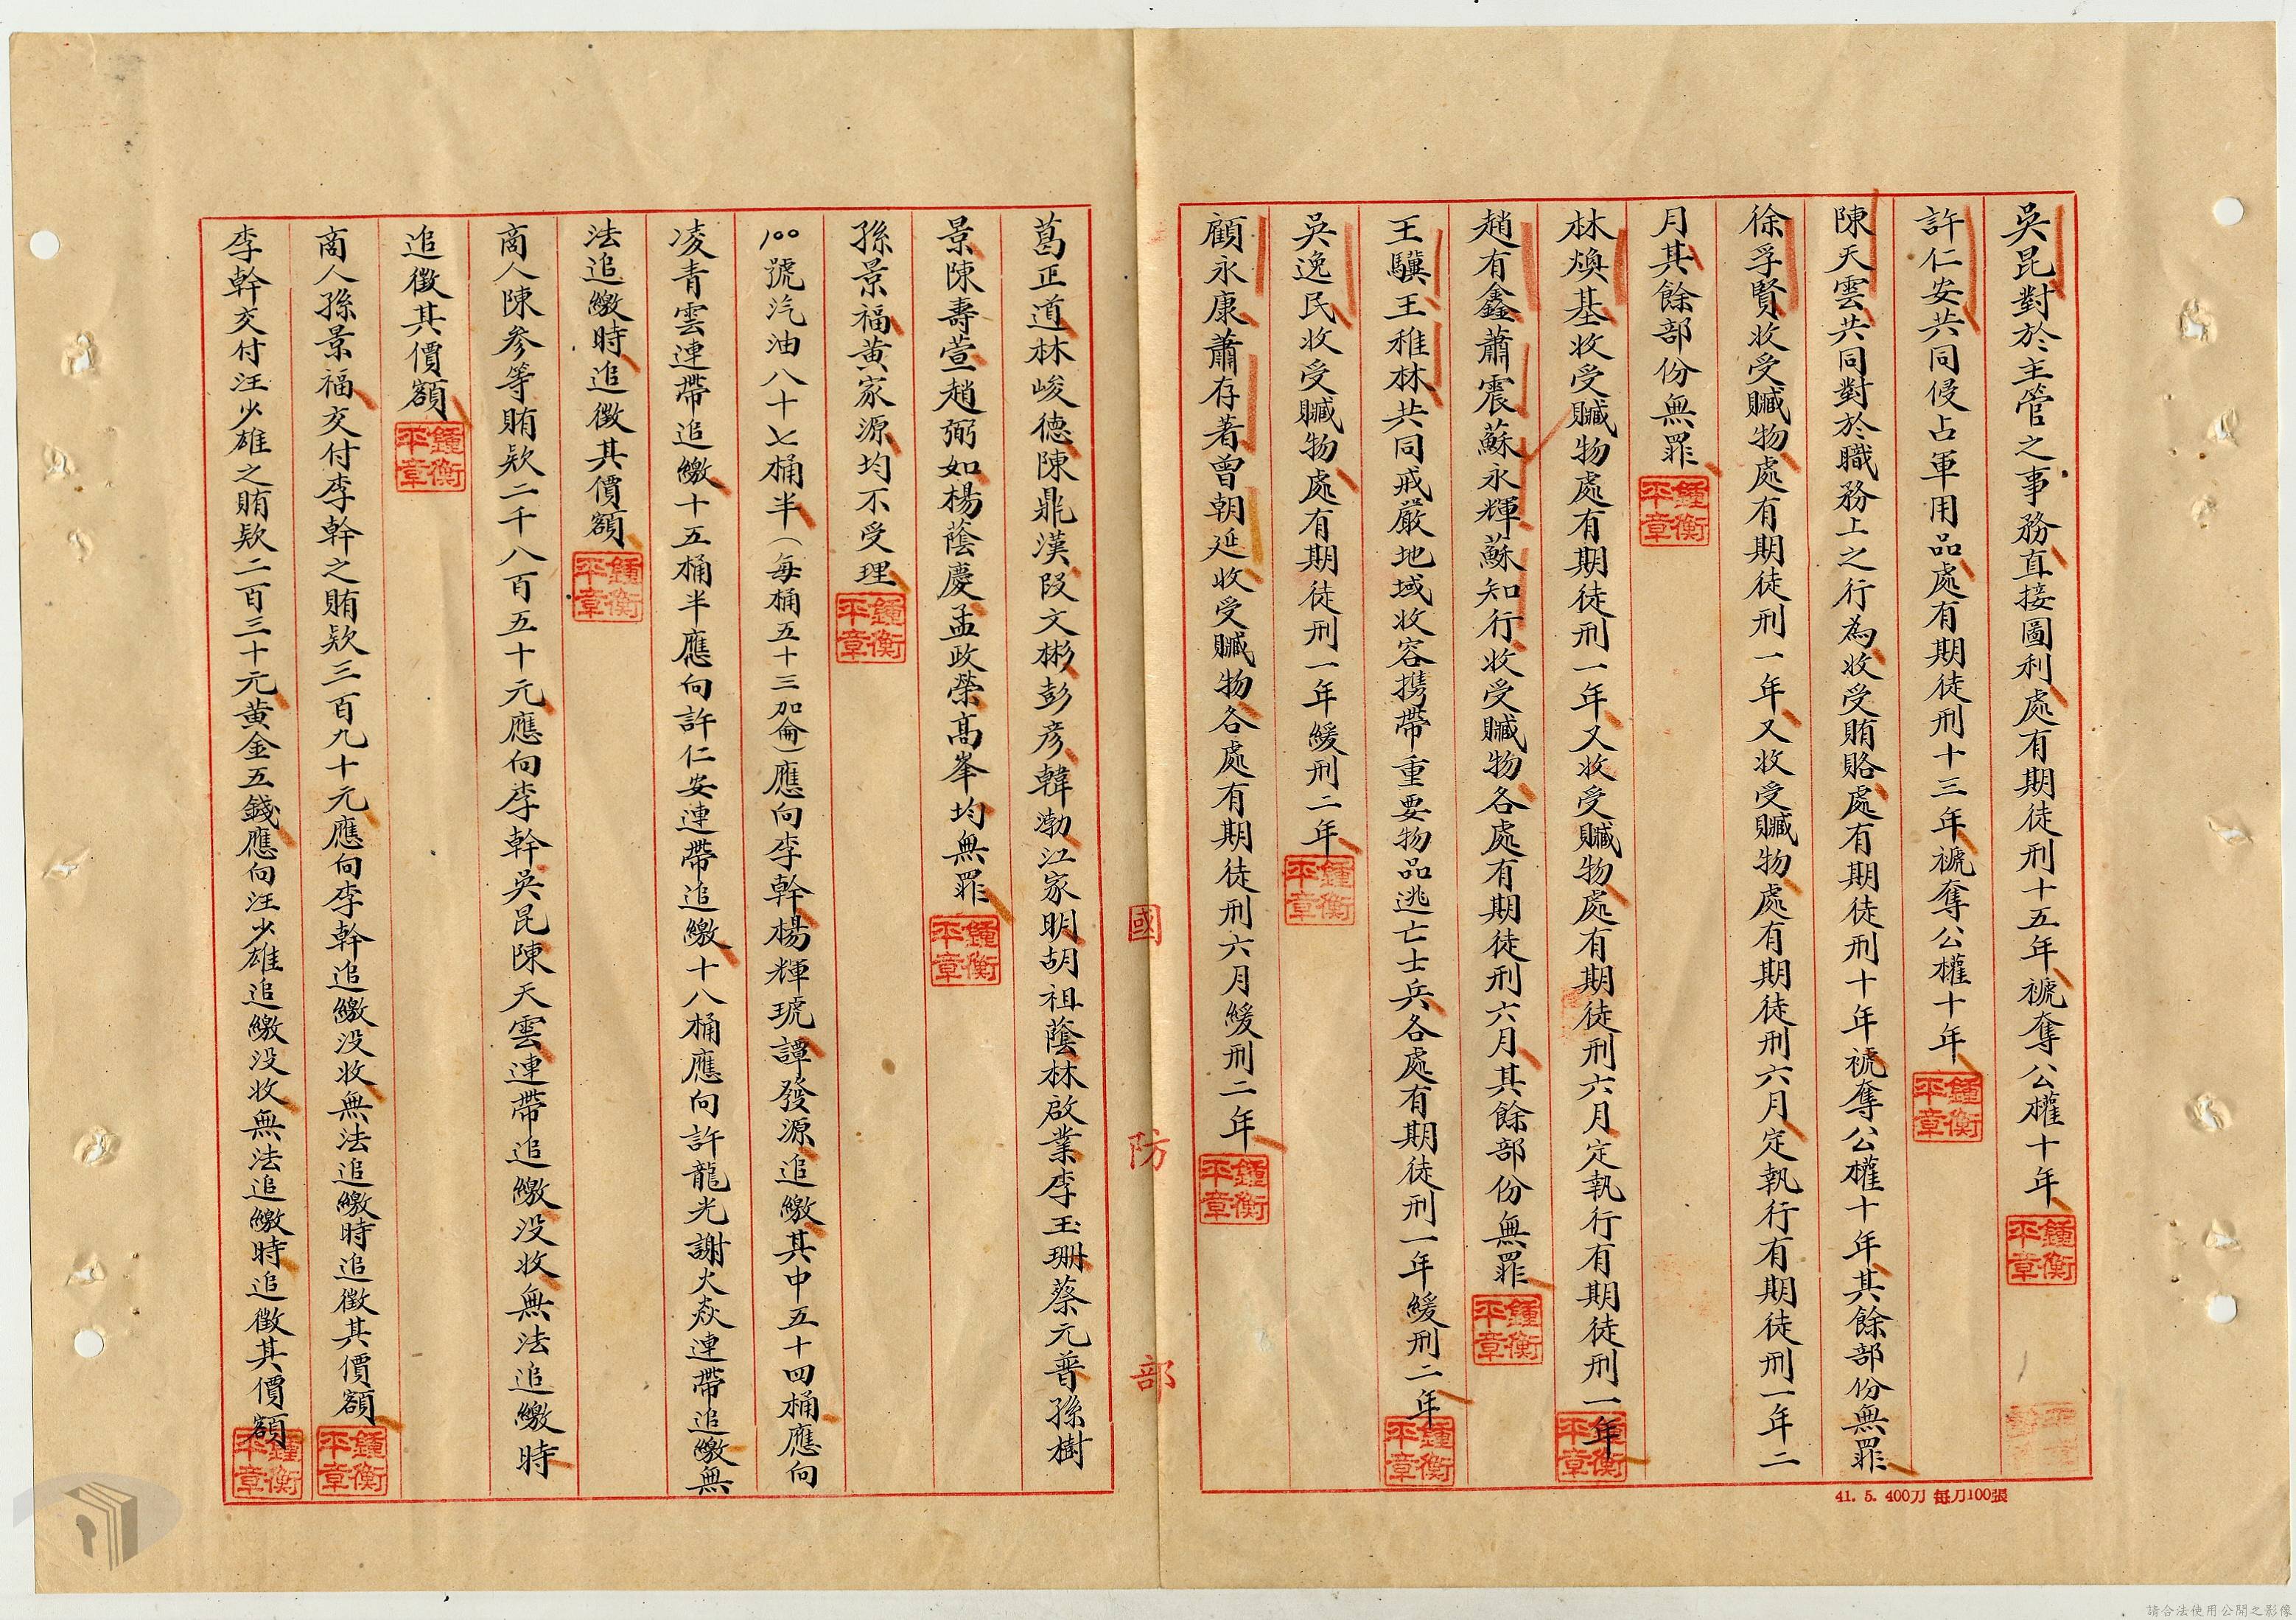 吳昆對於主管之事務直接圖利處有期徒刑十五年褫奪公權十年
鍾衡平章
許仁安共同侵占軍用品處有期徒刑十三年褫奪公權十年
鍾衡平章
陳天雲共同對於職務上之行為收受賄賂處有期徒刑十年褫奪公權十年其餘部份無罪
徐孚賢收受贓物處有期徒刑一年又收受贓物處有期徒刑六月定執行有期徒刑一年二
月其餘部份無罪
鍾衡平章
林煥基收受贓物處有期徒刑一年又收受贓物處有期徒刑六月定執行有期徒刑一年
鍾衡平章
趙有鑫蕭震蘇永輝蘇知行收受贓物各處有期徒刑六月其餘部份無罪
鍾衡平章
王驥王稚林共同戒嚴地域收容携帶重要物品逃亡士兵各處有期徒刑一年緩刑二年
鍾衡平章
吳逸民收受贓物處有期徒刑一年緩刑二年
鍾衡平章
顧永康蕭存著曾朝延收受贓物各處有期徒刑六月緩刑二年
鍾衡平章
41. 5. 400刀 每刀100張
國防部
葛正道林峻德陳鼎漢段文彬彭彦韓渤江家明胡祖蔭林啟業李玉珊蔡元普孫樹
景陳壽萱趙弼如楊蔭慶孟政榮高峯均無罪
鍾衡平章
孫景福黃家源均不受理
鍾衡平章
100號汽油八十七桶半（每桶五十三加侖）應向李幹楊輝琥譚發源追繳其中五十四桶應向
凌青雲連帶追繳十五桶半應向許仁安連帶追繳十八桶應向許龍光謝火焱連帶追繳無
法追繳時追徵其價額
鍾衡平章
商人陳參等賄欵二千八百五十元應向李幹吳昆陳天雲連帶追繳没收無法追繳時
追徵其價額
鍾衡平章
商人孫景福交付李幹之賄欵三百九十元應向李幹追繳没收無法追繳時追徵其價額
鍾衡平章
李幹交付汪少雄之賄欵二百三十元黄金五錢應向汪少雄追繳没收無法追繳時追徵其價額
鍾衡平章
請合法使用公開之影像